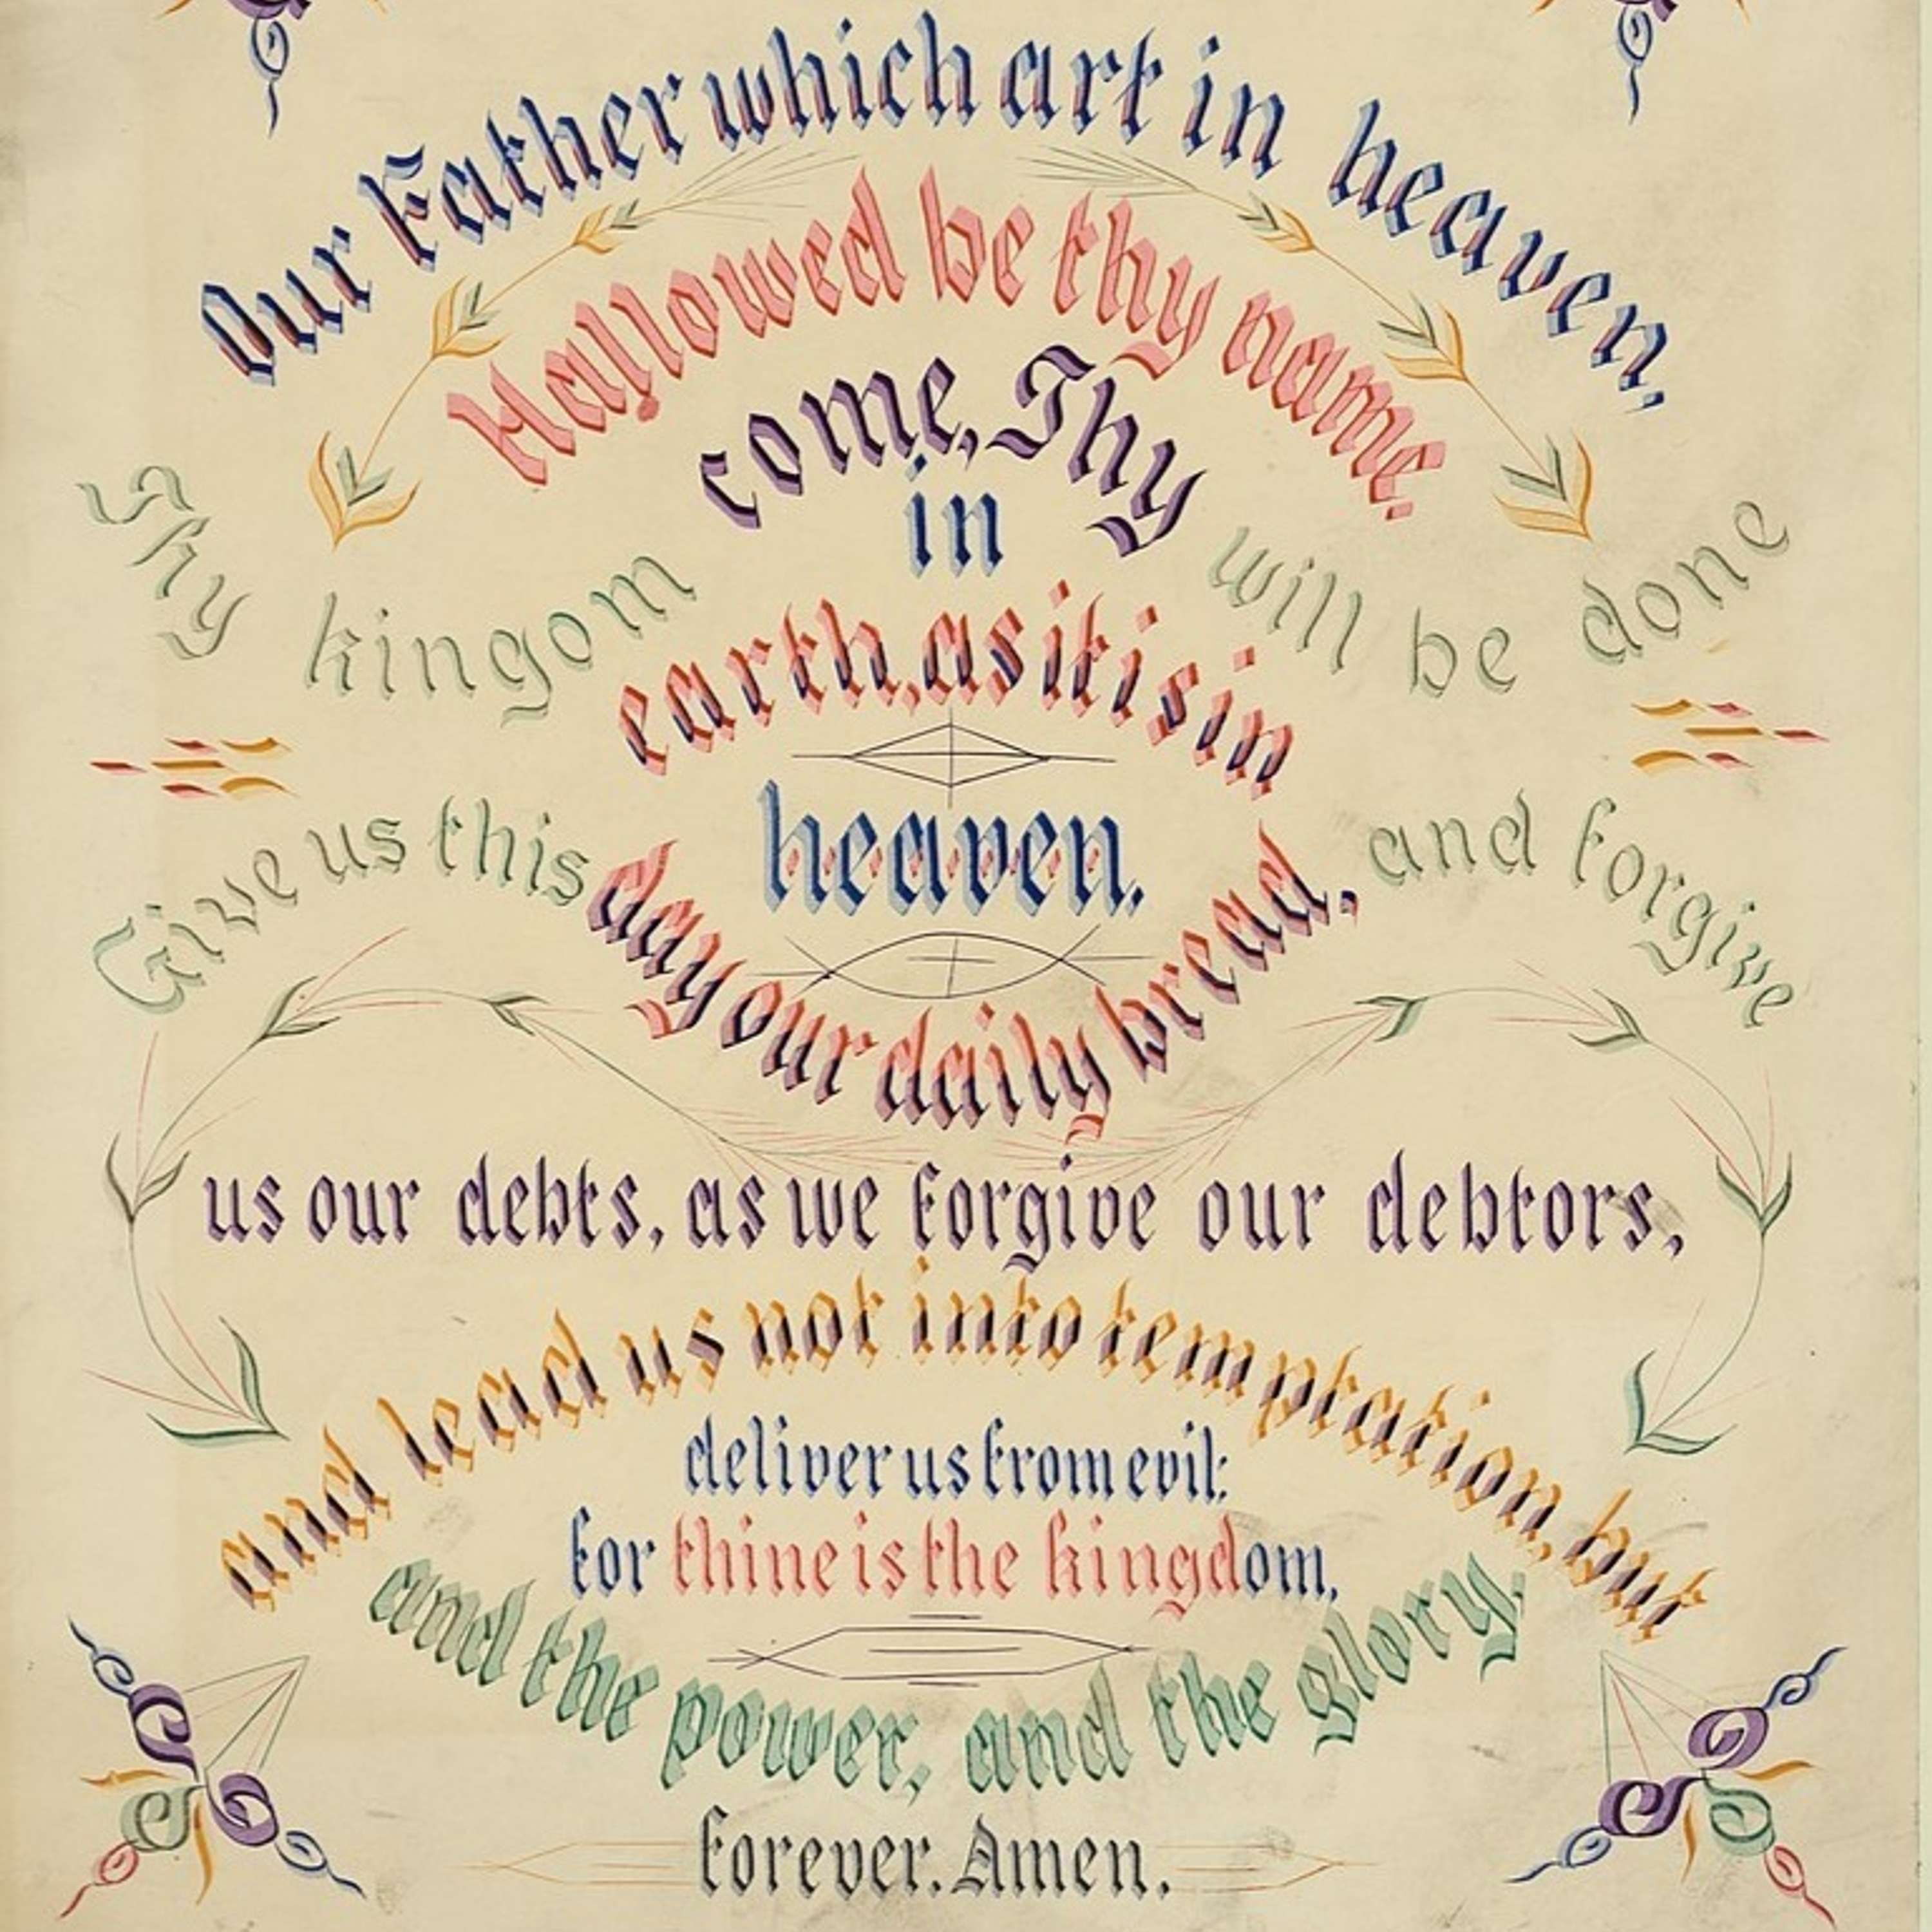 Our Father which art in heaven,
Hallowed be thy name.
Thy kingom come, Thy will be done
in
earth, as it is in
heaven.
Give us this day our daily bread, and forgive
us our debts, as we forgive our debtors,
and lead us not into temptation, but
deliver us from evil:
for thine is the kingdom,
and the power, and the glory,
forever. Amen.